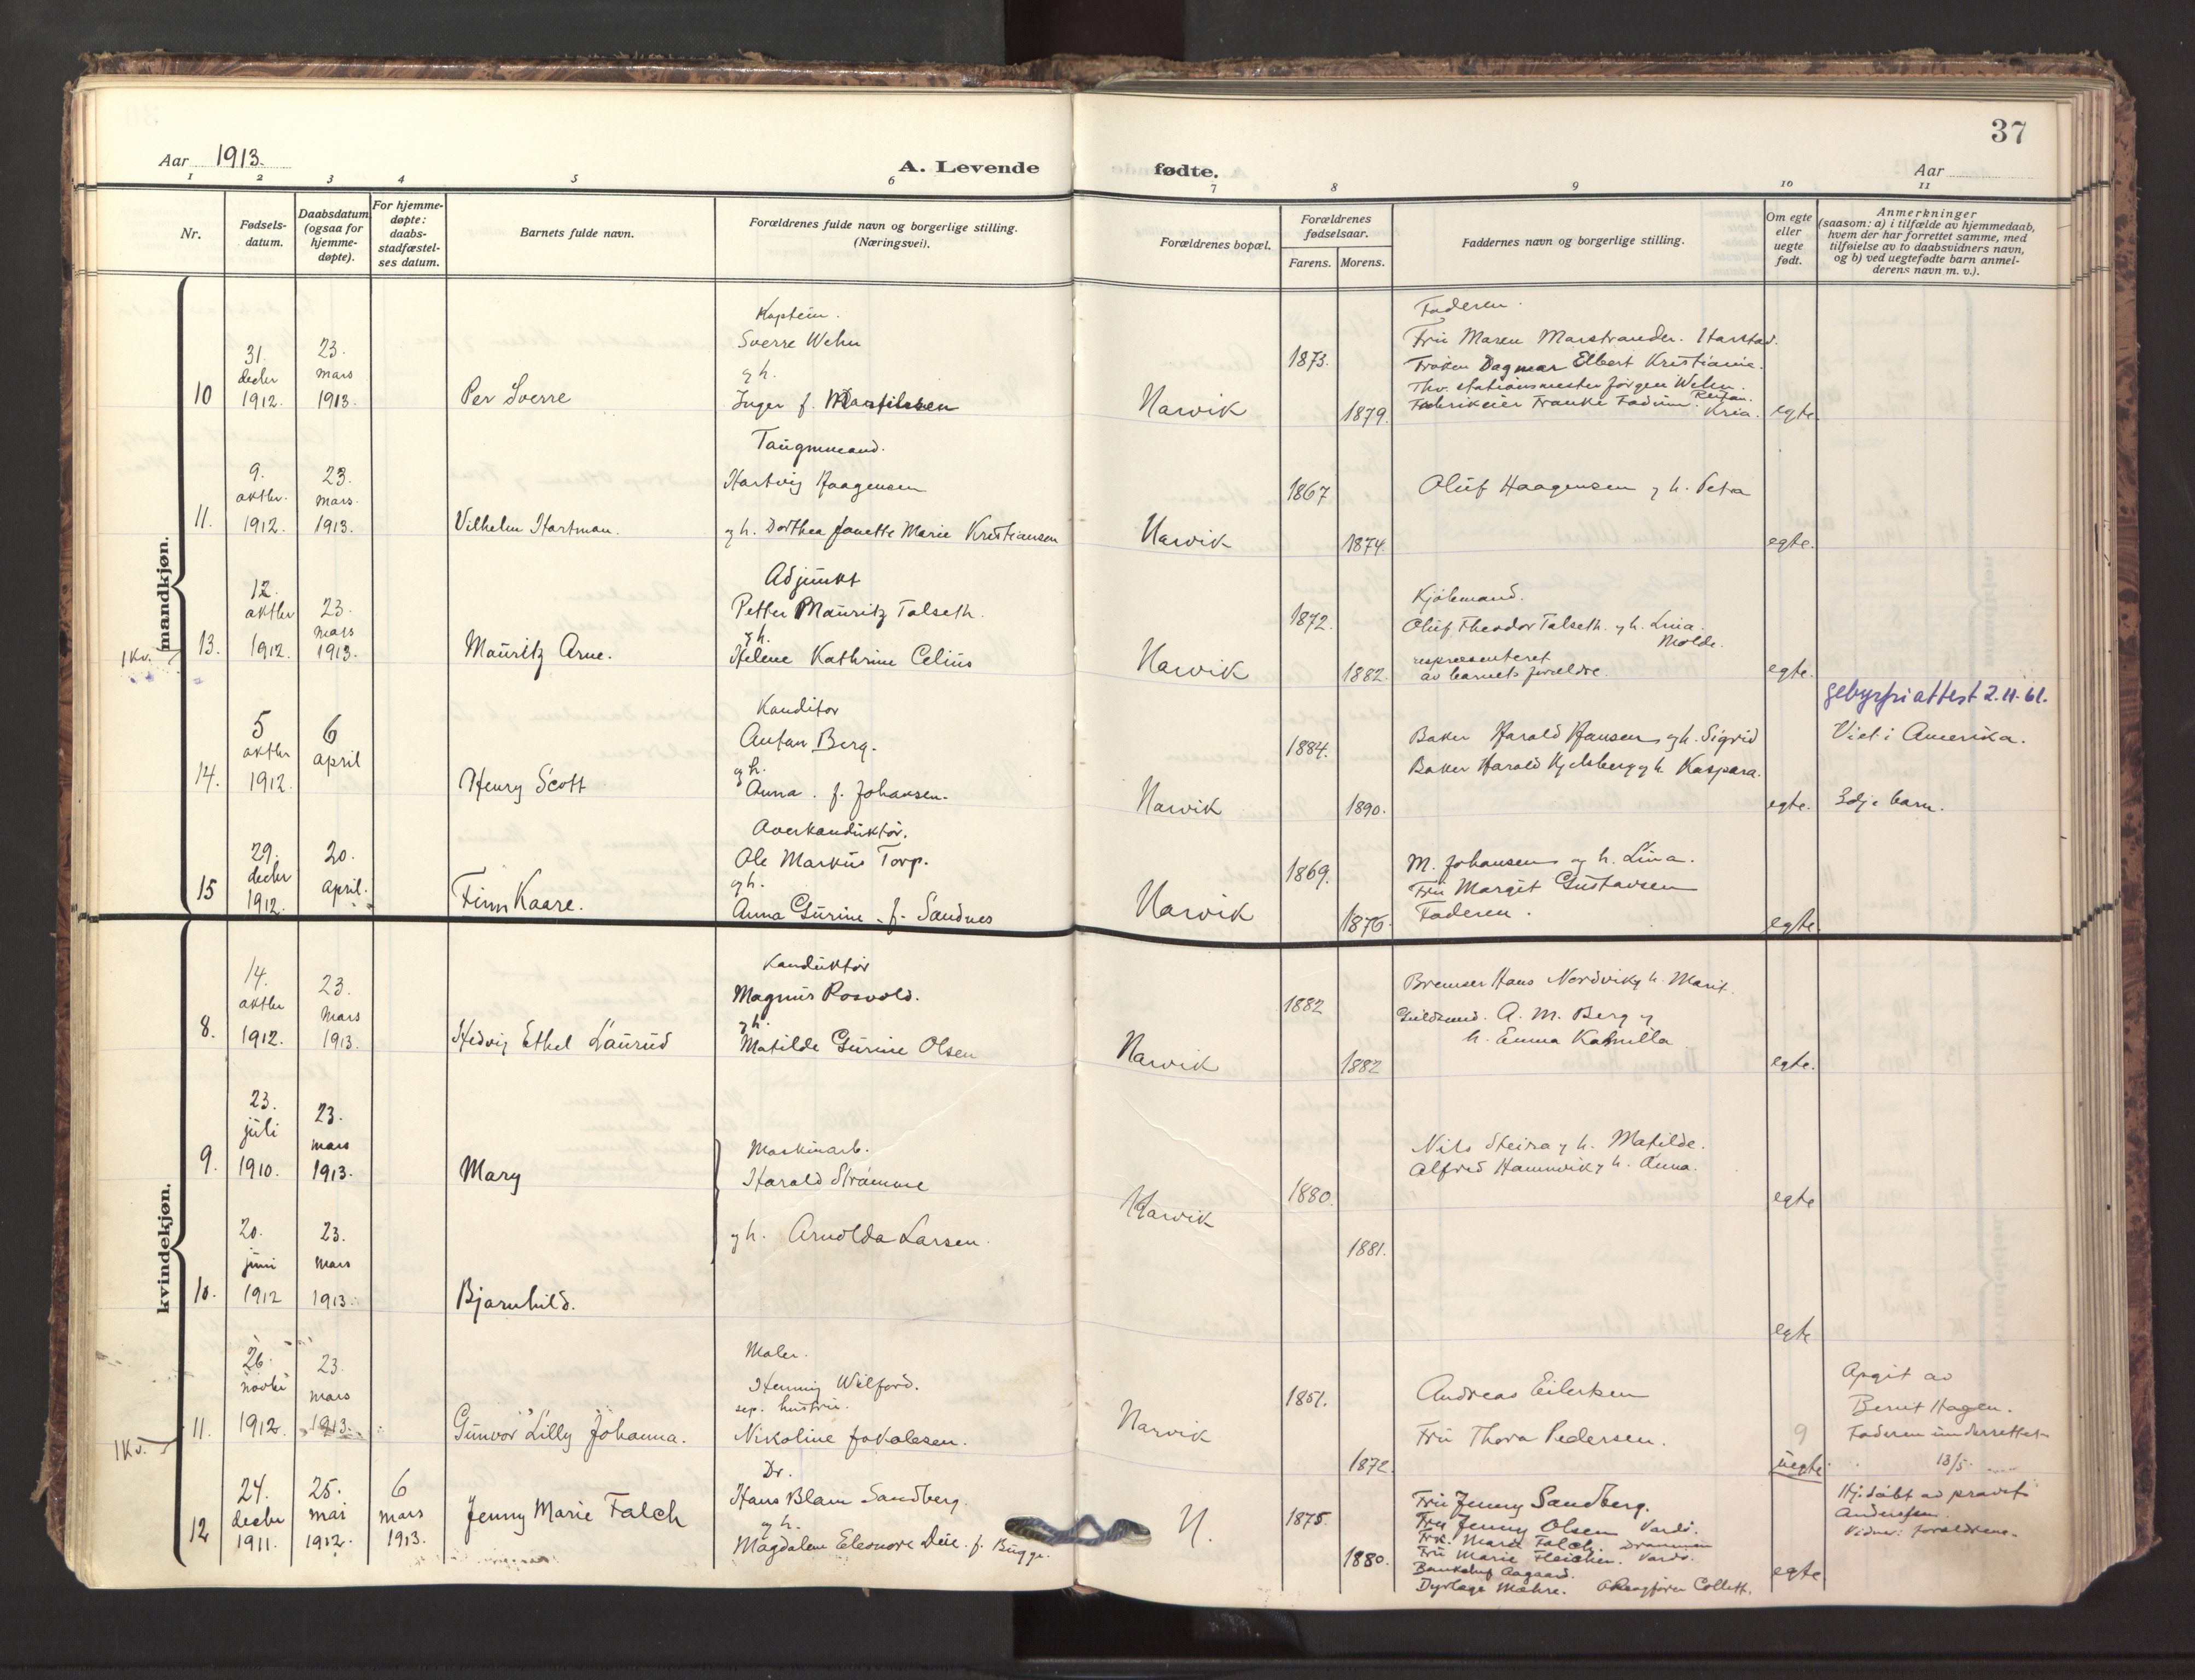 37
Aar 1913.
A. Levende fødte.
Aar
1 2 3 4 5 6 7 8 9 10 11
Nr.
Fødsels-
datum.
Daabsdatum
(ogsaa for
hjemme-
døpte).
For hjemme-
døpte:
daabs-
stadfæstel-
ses datum.
Barnets fulde navn.
Forældrenes fulde navn og borgerlige stilling.
(Næringsvei).
Forældrenes bopæl.
Forældrenes
fødselsaar.
Farens. Morens.
Faddernes navn og borgerlige stilling.
Om egte
eller
uegte
født.
Anmerkninger
(saasom: a) i tilfælde av hjemmedaab,
hvem der har forrettet samme, med
tilføielse av to daabsvidners navn,
og b) ved uegtefødte barn anmel-
derens navn m. v.).
mandkjøn.
10
31.
decbr
1912.
23.
mars
1913.
Per Sverre
Kaptein.
Sverre Wehn
og h.
Inger f.
Narvik
1873.
1879.
Faderen.
Fru Maren Marstrander. Harstad.
Frøken Dagmar Elbert Kristiania.
Thv. stationsmester Jørgen Wehn.
Fabrikeier Kria.
egte.
11.
9.
oktbr.
1912.
23.
mars.
1913.
Vilhelm Hartman.
Taugmand.
Hartvig Haagensen
og h. Dorthea Janette Marie Kristiansen
Narvik
1867
1874.
Oluf Haagensen og h. Petra
egte.
1 Kv.
13.
12.
oktbr
1912.
23.
mars
1913.
Mauritz Arne.
Adjunkt
Petter Mauritz Talseth.
og h.
Helene Kathrine Celius
Narvik
1872.
1882.
Kjøbmand.
Oluf Theodor Talseth. og h. Lina.
Molde.
repræsenteret
av barnets forældre.
egte.
14.
5
oktbr
1912.
6
april
Henry Scott
Kanditor
Anton Berg.
og h.
Anna. f. Johansen.
Narvik
1884.
1890.
Baker Harald Hansen og h. Sigrid
Baker Harald Hjelsberg og h. Kaspara.
egte.
gebyrfri attest 2.11.61.
Viet i Amerika.
3dje barn.
15
29.
decbr
1912.
20.
april.
Finn Kaare.
Overkonduktør.
Ole Markus Torp.
og h.
Anna Gurine f. Sandnes
Narvik
1869.
1876.
M. Johansen og h. Lina.
Fru Margit Gustavsen
Faderen.
egte.
kvindekjøn.
8.
14.
oktbr
1912.
23.
mars
1913.
Hedvig Ethel Laurud
Konduktør
Magnus Rosvold.
og h.
Matilde Gurine Olsen
Narvik
1882
1882
Bremser Hans Nordvik og h. Marit.
Guldsmed. A. M. Berg og
h. Emma Kamilla
egte.
9.
23.
juli
1910.
23.
mars
1913.
Mary
Maskinarb.
Harald Strømme
og h. Arnolda Larsen.
Narvik
1880.
1881.
Nils Steira og h. Matilde.
Alfred Hamnvik og h. Anna.
egte
10.
20.
juni
1912
23.
mars
1913.
Bjarnhild.
egte
1 Kv.
11.
26.
novbr
1912.
23.
mars
1913.
Gunvor Lilly Johanna.
Maler.
Henning Wilford.
sep. hustru.
Nikoline Jakobsen.
Narvik
1851.
1872.
Andreas Eilertsen
Fru Thora Pedersen.
9
uegte
Opgit av
Berit Hagen.
Faderen underrettet
13/5.
12
24.
decbr
1911.
25.
mai
1912.
6
mars
1913.
Jenny Marie Falch
Dr.
Hans Blam Sandberg.
og h.
Magdalene Eleonore Deie. f. Bugge.
N.
1875.
1880.
Fru Jenny Sandberg.
Fru Jenny Olsen Vardø.
Frk. Marie Falch. Drammen
Fru Marie Fleischer. Vardø.
Bankchef Aagaard.
Dyrlæge Mæhre. Collett.
egte
Hj. døbt av provst
Anderssen.
Vidner: forældrene.